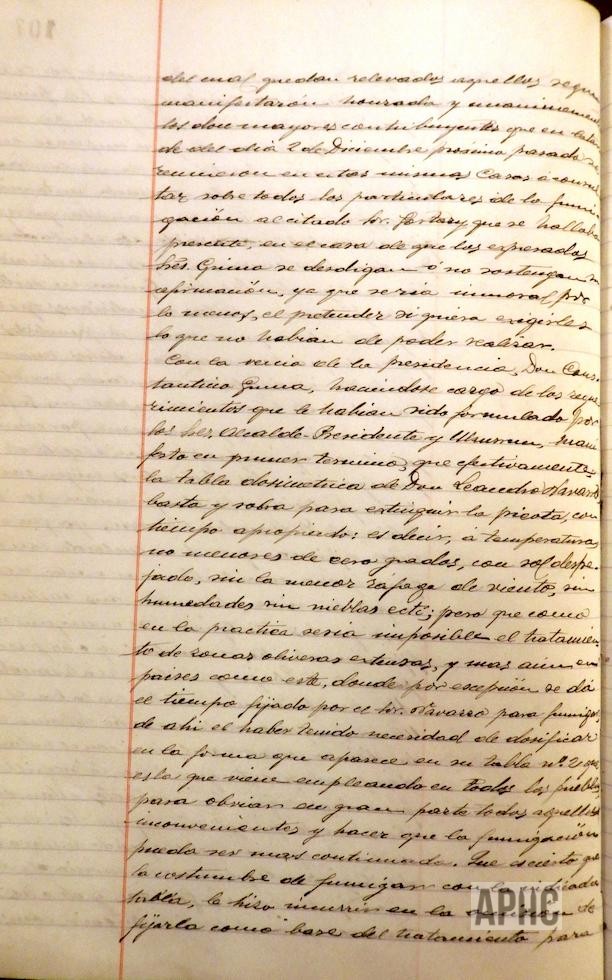 del cual quedan relevados aquellos segun
manifestarón honrada y unanimemen
los doce mayores contribuyentes que en la tar
de del dia 2 de Diciembre proximo pasado se
reunieron en estas mismas Casas á consul
tar sobre todos los particulares de la fumi
gación al citado Sr. que se hallaba
presente, en el caso de que los expresados
Sres. Gima se desdigan ó no sostengan su
afirmación, ya que seria inmoral por
lo menos, el pretender siquiera exigirles
lo que no habian de poder realizar.
Con la venia de la presidencia, Don Cons
tantino Gima, haciendose cargo de los reque
rimientos que le habian sido formulados por
los Sres Alcalde-Presidente y mani
festo en primer termino, que efectivamente
la tabla dosimetrica de Don Leandro Navarro
basta y sobra para extinguir la piojota, con
tiempo apropiado: es decir, á temperaturas
no menores de cero grados, con sol despe
jado, sin la menor rafaga de viento, sin
humedades sin nieblas ectª; pero que como
en la practica seria imposible el tratamien
to de zonas oliveras extensas, y mas aun en
paises como este, donde por excepción se dá
el tiempo fijado por el Sr. Navarro para fumigar,
de ahi el haber tenido necesidad de dosificar
en la forma que aparece en su tabla nº 2 que
es la que viene empleando en todos los pueblos,
para obviar en gran parte todos aquellos
inconvenientes y hacer que la fumigación
pueda ser mas continuada. Que es cierto que
la costumbre de fumigar con la indicada
tabla, le hizo incurrir en la omision de
fijarla como base del tratamiento para
APHC